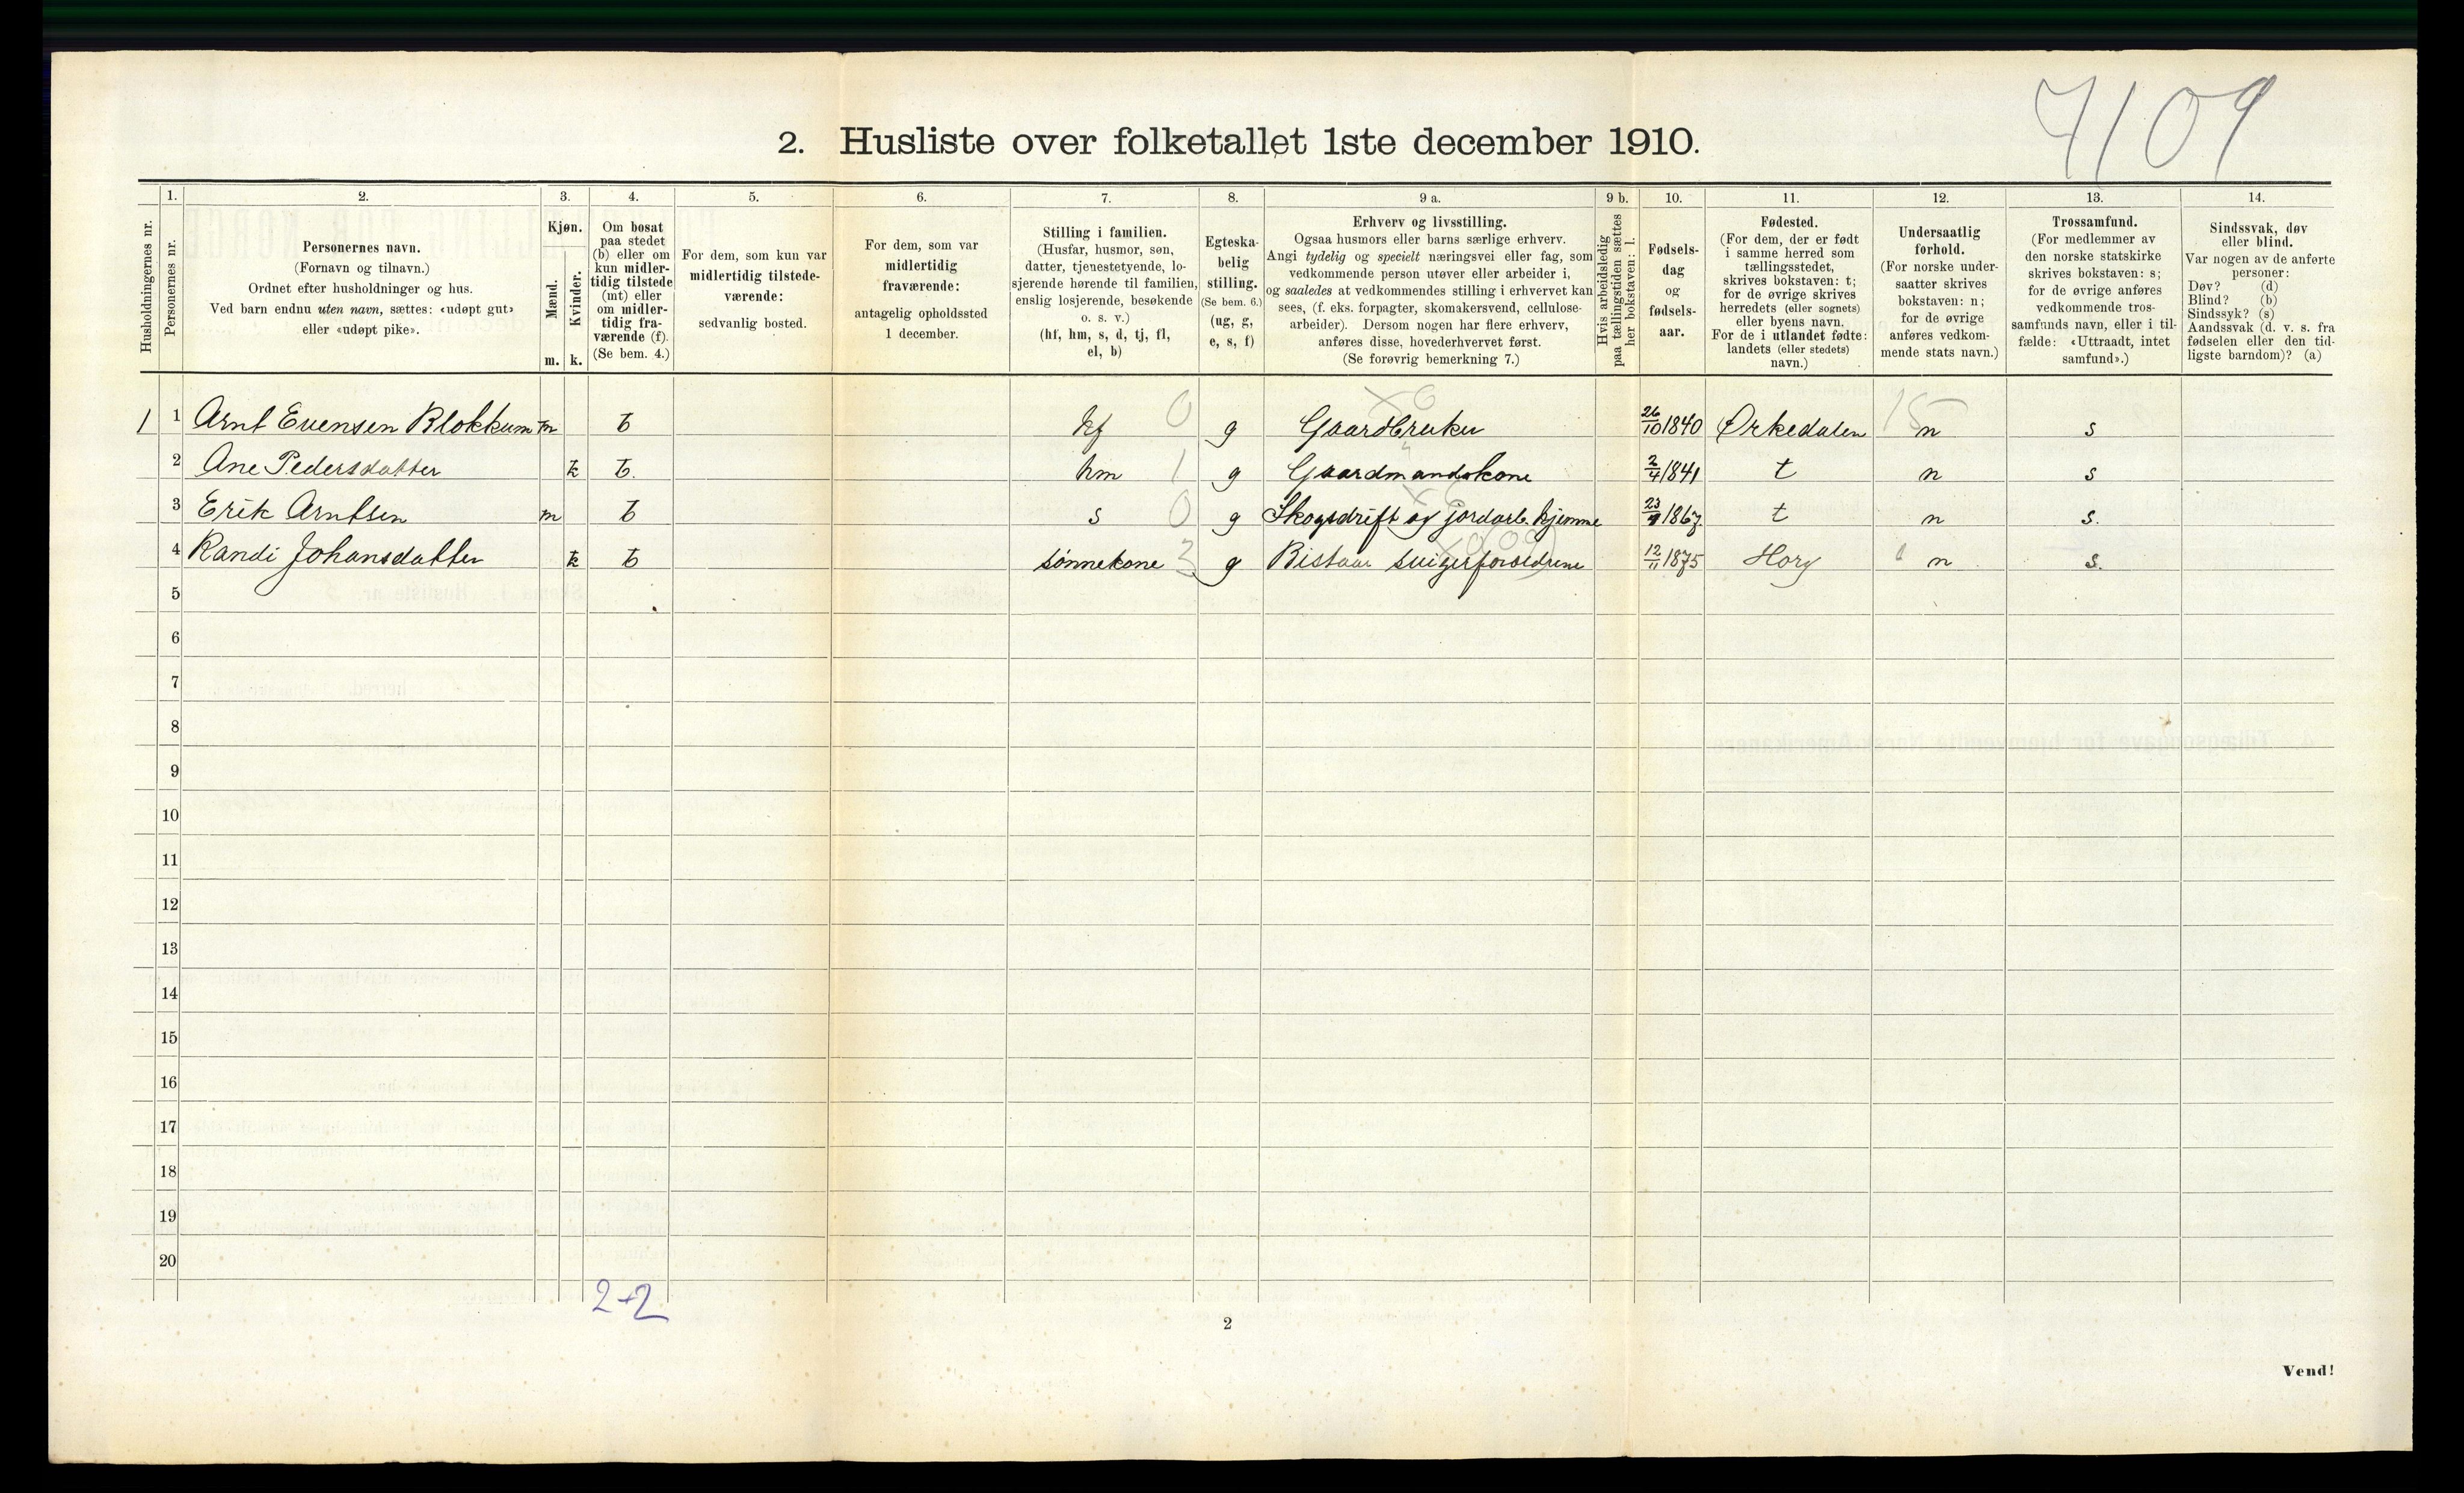 7109
2. Husliste over folketallet 1ste december 1910.
Husholdningernes nr.
1.
Personernes nr.
2.
Personernes navn.
(Fornavn og tilnavn.)
Ordnet efter husholdninger og hus.
Ved barn endnu uten navn, sættes: «udøpt gut»
eller «udøpt pike».
3.
Kjøn.
Mænd.
Kvinder.
m. k.
4.
Om bosat
paa stedet
(b) eller om
kun midler-
tidig tilstede
(mt) eller
om midler-
tidig fra-
værende (f).
(Se bem. 4.)
5.
For dem, som kun var
midlertidig tilstede-
værende:
sedvanlig bosted.
6.
For dem, som var
midlertidig
fraværende:
antagelig opholdssted
1 december.
7.
Stilling i familien.
(Husfar, husmor, søn,
datter, tjenestetyende, lo-
sjerende hørende til familien,
enslig losjerende, besøkende
o. s. v.)
(hf, hm, s, d, tj, fl,
el, b)
8.
Egteska-
belig
stilling.
(Se bem. 6.)
(ug, g,
e, s, f)
9 a.
Erhverv og livsstilling.
Ogsaa husmors eller barns særlige erhverv.
Angi tydelig og specielt næringsvei eller fag, som
vedkommende person utøver eller arbeider i,
og saaledes at vedkommendes stilling i erhvervet kan
sees, (f. eks. forpagter, skomakersvend, cellulose-
arbeider). Dersom nogen har flere erhverv,
anføres disse, hovederhvervet først.
(Se forøvrig bemerkning 7.)
9 b.
Hvis arbeidsledig
paa tællingstiden sættes
her bokstaven: l.
10.
Fødsels-
dag
og
fødsels-
aar.
11.
Fødested.
(For dem, der er født
i samme herred som
tællingsstedet,
skrives bokstaven: t;
for de øvrige skrives
herredets (eller sognets)
eller byens navn.
For de i utlandet fødte:
landets (eller stedets)
navn.)
12.
Undersaatlig
forhold.
(For norske under-
saatter skrives
bokstaven: n;
for de øvrige
anføres vedkom-
mende stats navn.)
13.
Trossamfund.
(For medlemmer av
den norske statskirke
skrives bokstaven: s;
for de øvrige anføres
vedkommende tros-
samfunds navn, eller i til-
fælde: «Uttraadt, intet
samfund».)
14.
Sindssvak, døv
eller blind.
Var nogen av de anførte
personer:
Døv? (d)
Blind? (b)
Sindssyk? (s)
Aandssvak (d. v. s. fra
fødselen eller den tid-
ligste barndom)? (a)
1 1 Arnt Evensen Blokkum m b hf 0 g Gaardbruker 26/10 1840 Ørkedalen 15 n s
2 Ane Pedersdatter k b. hm 1 g Gaardmandskone 2/4 1841 t n s
3 Erik Arntsen m b s 0 g Skogsdrift og jordarb. hjemme 1867 t n s.
4 Randi Johansdatter k b sønnekone 3 g Bistaar svigerforældrene 12/11 1875 Horg n s.
5
6
7
8
9
10
11
12
13
14
15
16
17
18
19
20
2-2
2
Vend!